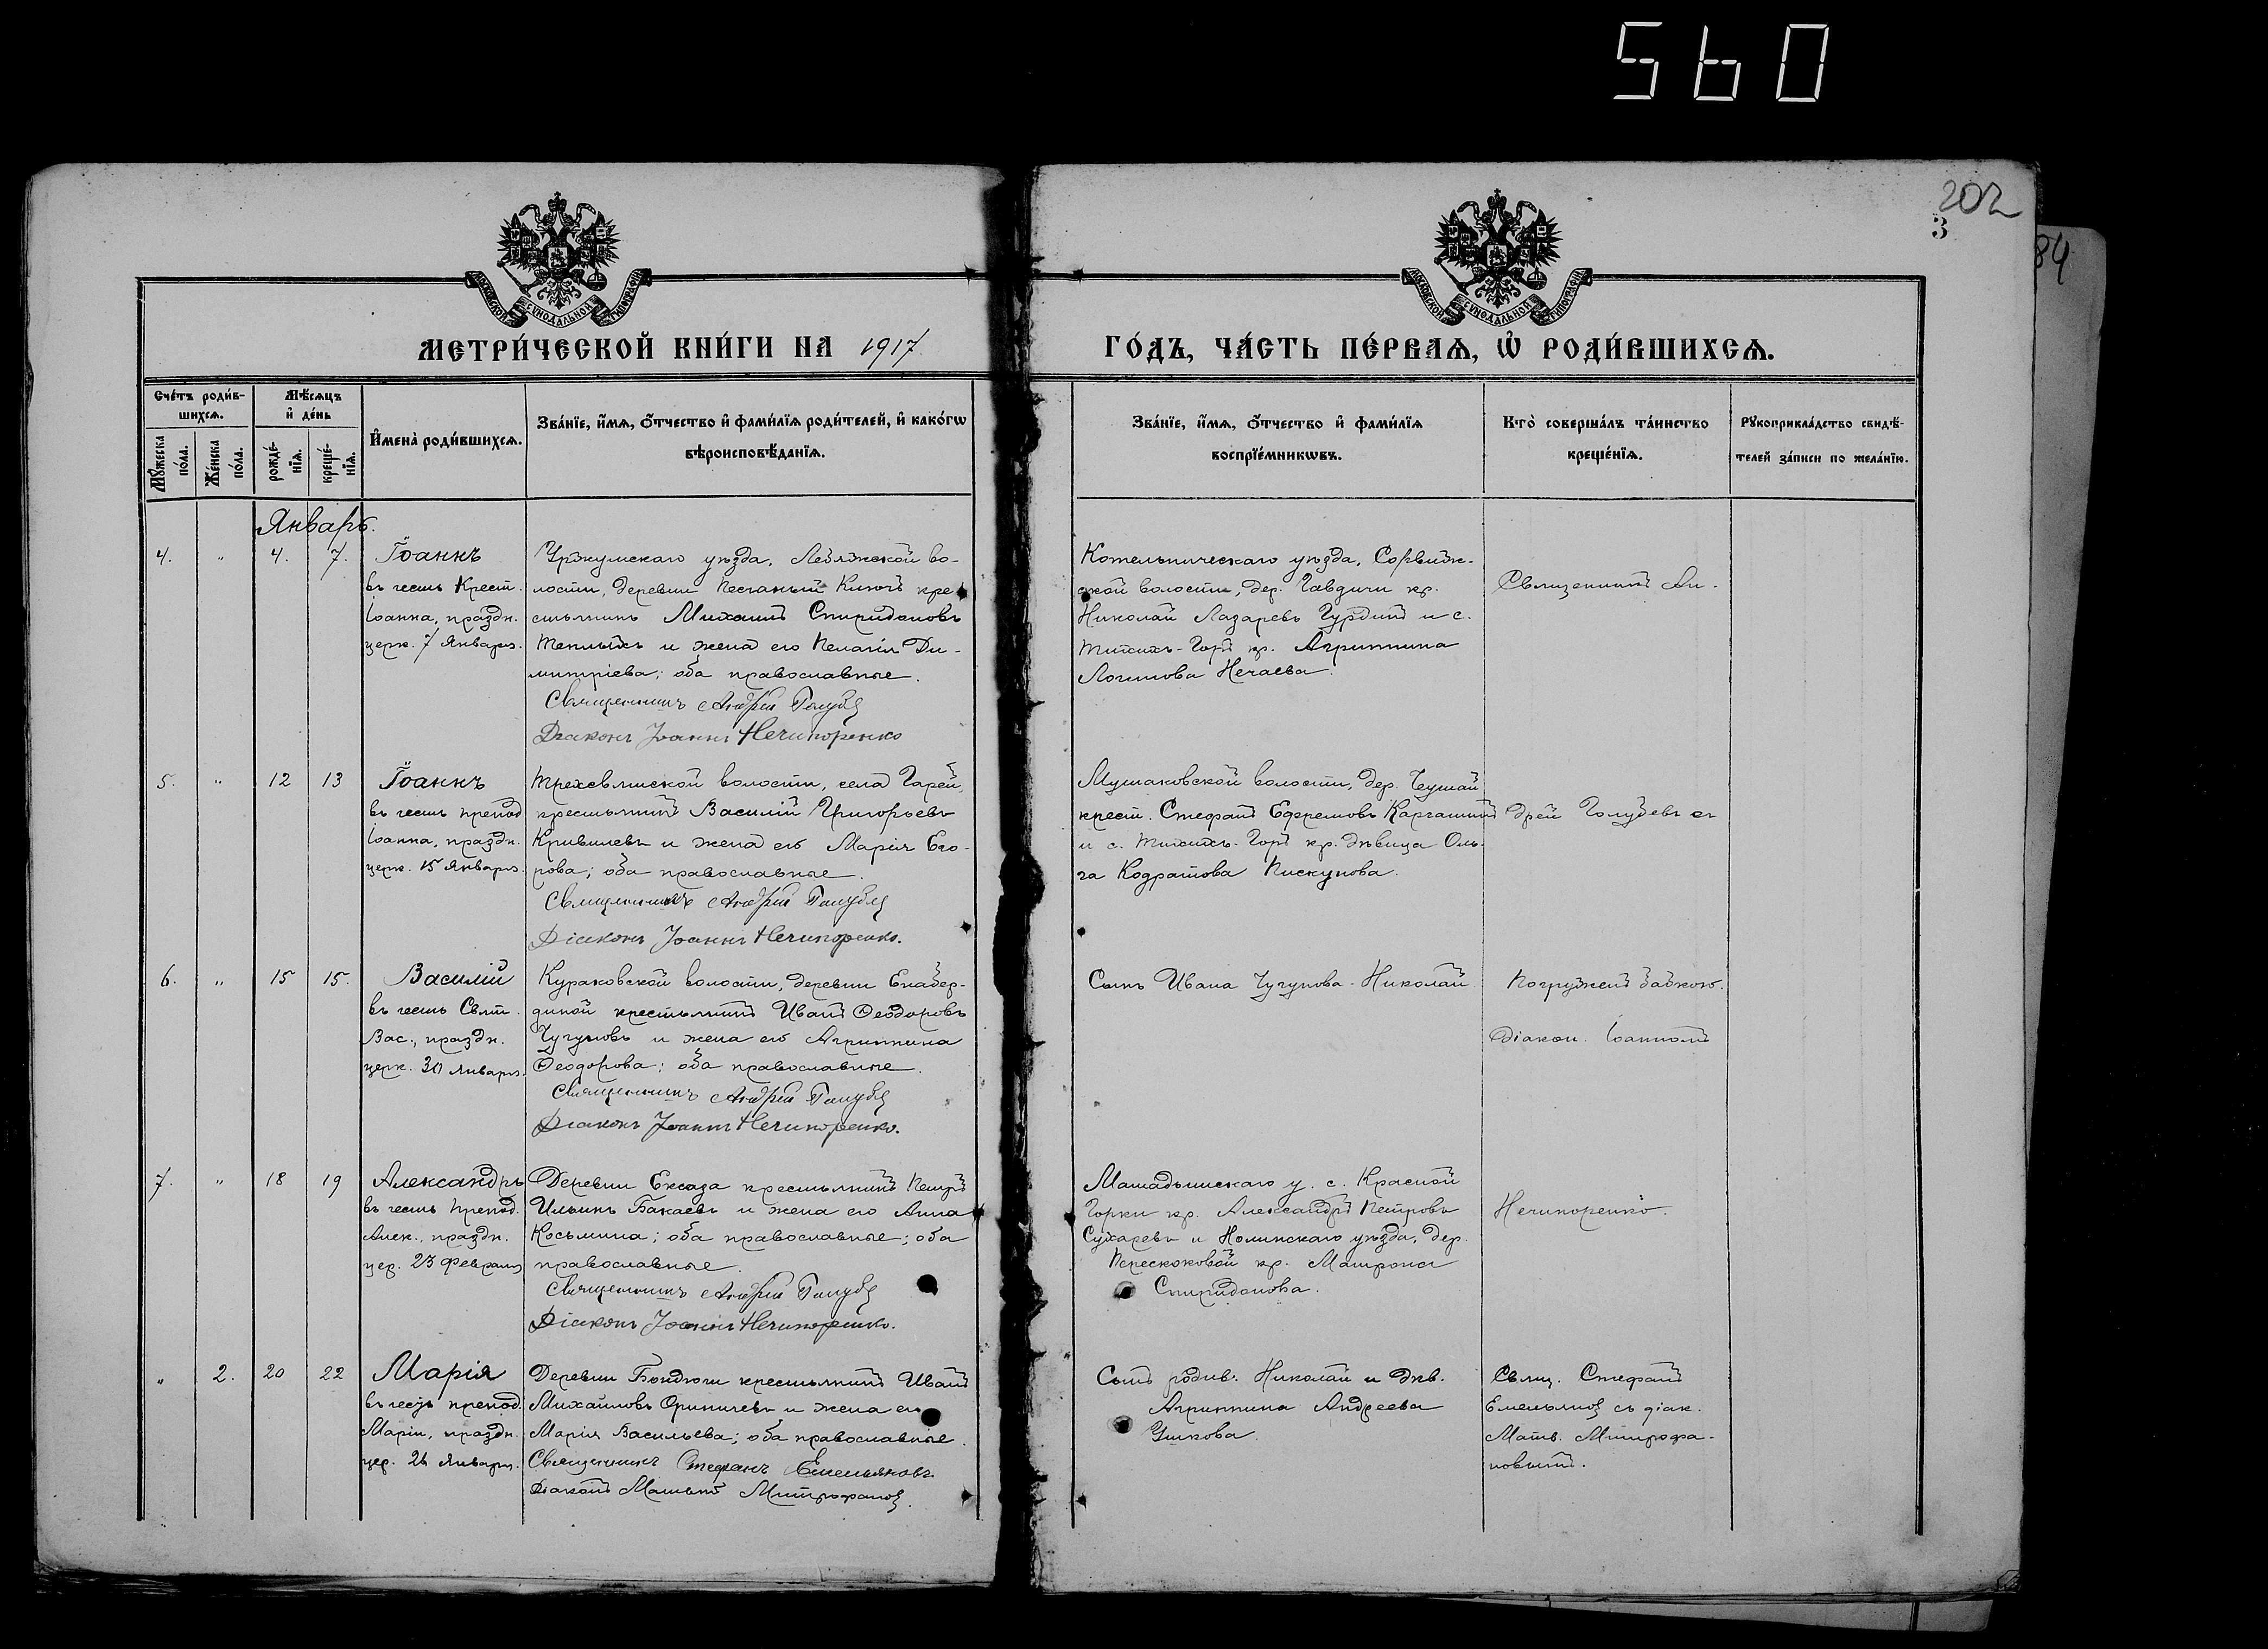 560
202
3
84
МОСКОВСКОЙ СѴНОДАЛЬНОЙ ТИПОГРАФІИ
МОСКОВСКОЙ СѴНОДАЛЬНОЙ ТИПОГРАФІИ
МЕТРИ́ЧЕСКОЙ КНИ́ГИ НА 1917 ГО́ДЪ, ЧА́СТЬ ПЕ́РВАѦ, Ѡ҆ РОДИ́ВШИХСѦ.
Сче́тъ роди́в-
шихсѧ.
Мꙋ́жеска
по́ла.
Же́нска
по́ла.
Мѣ́сѧцъ
и҆ де́нь
рожде́-
нїѧ.
креще́-
нїѧ.
И҆мена̀ роди́вшихсѧ.
Зва́нїе, и҆́мѧ, ѻ҆́тчество и҆ фами́лїѧ роди́телей, и҆ како́гѡ
вѣроисповѣ́данїѧ.
Зва́нїе, и҆́мѧ, ѻ҆́тчество и҆ фами́лїѧ
воспрїе́мникѡвъ.
Кто̀ соверша́лъ та́инство
креще́нїѧ.
Рꙋкоприкла́дство свидѣ́-
телей за́писи по жела́нїю.
Январь.
4. " 4. 7. Іоаннъ
въ честь Крест.
Іоанна, праздн.
церк. 7 Января.
Уржумскаго уѣзда, Лебяжской во-
лости, деревни Песчаный Ключъ кре-
стьянинъ Михаилъ Спиридоновъ
Теплыхъ и жена его Пелагія Ди-
митріева; оба православные.
Священникъ Андрей Голубе
Діаконъ Іоаннъ Нечипоренко
Котельническаго уѣзда, Сорвиж-
ской волости, дер. Гавдичи кр.
Николай Лазаревъ Гурдинъ и с.
Тихихъ-Горъ кр. Агриппина
Логинова Нечаева.
Священникъ Ан-
5. " 12 13 Іоаннъ
въ честь препод
Іоанна, праздн.
церк. 15 Января.
Трехсвятской волости, села Гарей,
крестьянинъ Василій Григорьевъ
Кривилевъ и жена его Марія Его-
рова; оба православные.
Священникъ Андрей Голубе
Діаконъ Іоаннъ Нечипоренко.
Мушаковской волости, дер. Чушай
крест. Стефанъ Ефремовъ Каргашинъ
и с. Тихихъ-Горъ кр. дѣвица Оль-
га Кодратова Пискунова.
дрей Голубевъ съ
6. " 15 15. Василій
въ честь Свят.
Вас., праздн.
церк. 30 Января.
Кураковской волости, деревни Енабер-
диной крестьянинъ Иванъ Ѳеодоровъ
Чугуновъ и жена его Агриппина
Ѳеодорова; оба православные.
Священникъ Андрей Голубе
Діаконъ Іоаннъ Нечипоренко.
Сынъ Ивана Чугунова - Николай
Погруженъ бабкою.
Діакон. Іоанномъ
7. " 18 19 Александръ
въ честь препод.
Алек., праздн.
цер. 23 Февраля
Деревни Ексаза крестьянинъ Петръ
Ильинъ Бакаевъ и жена его Анна
Косьмина; оба православные; оба
православные.
Священникъ Андрей Голубе
Діаконъ Іоаннъ Нечипоренко.
Мамадышскаго у. с. Красной
Горки кр. Александръ Петровъ
Сухаревъ и Нолинскаго уѣзда, дер.
Перескоковой кр. Матрона
Спиридонова.
Нечипоренко.
" 2. 20 22 Марія
въ честь препод.
Маріи, праздн.
цер. 26 Января.
Деревни Бондюги крестьянинъ Иванъ
Михайловъ Ориничевъ и жена его
Марія Васильева; оба православные.
Священникъ Стефанъ Емельяновъ.
Діаконъ Матвѣй Митрофанов.
Сынъ родив. Николай и дѣв.
Агриппина Андреева
Ушкова.
Свящ. Стефанъ
Емельянов съ діак.
Матв. Митрофа-
новымъ.